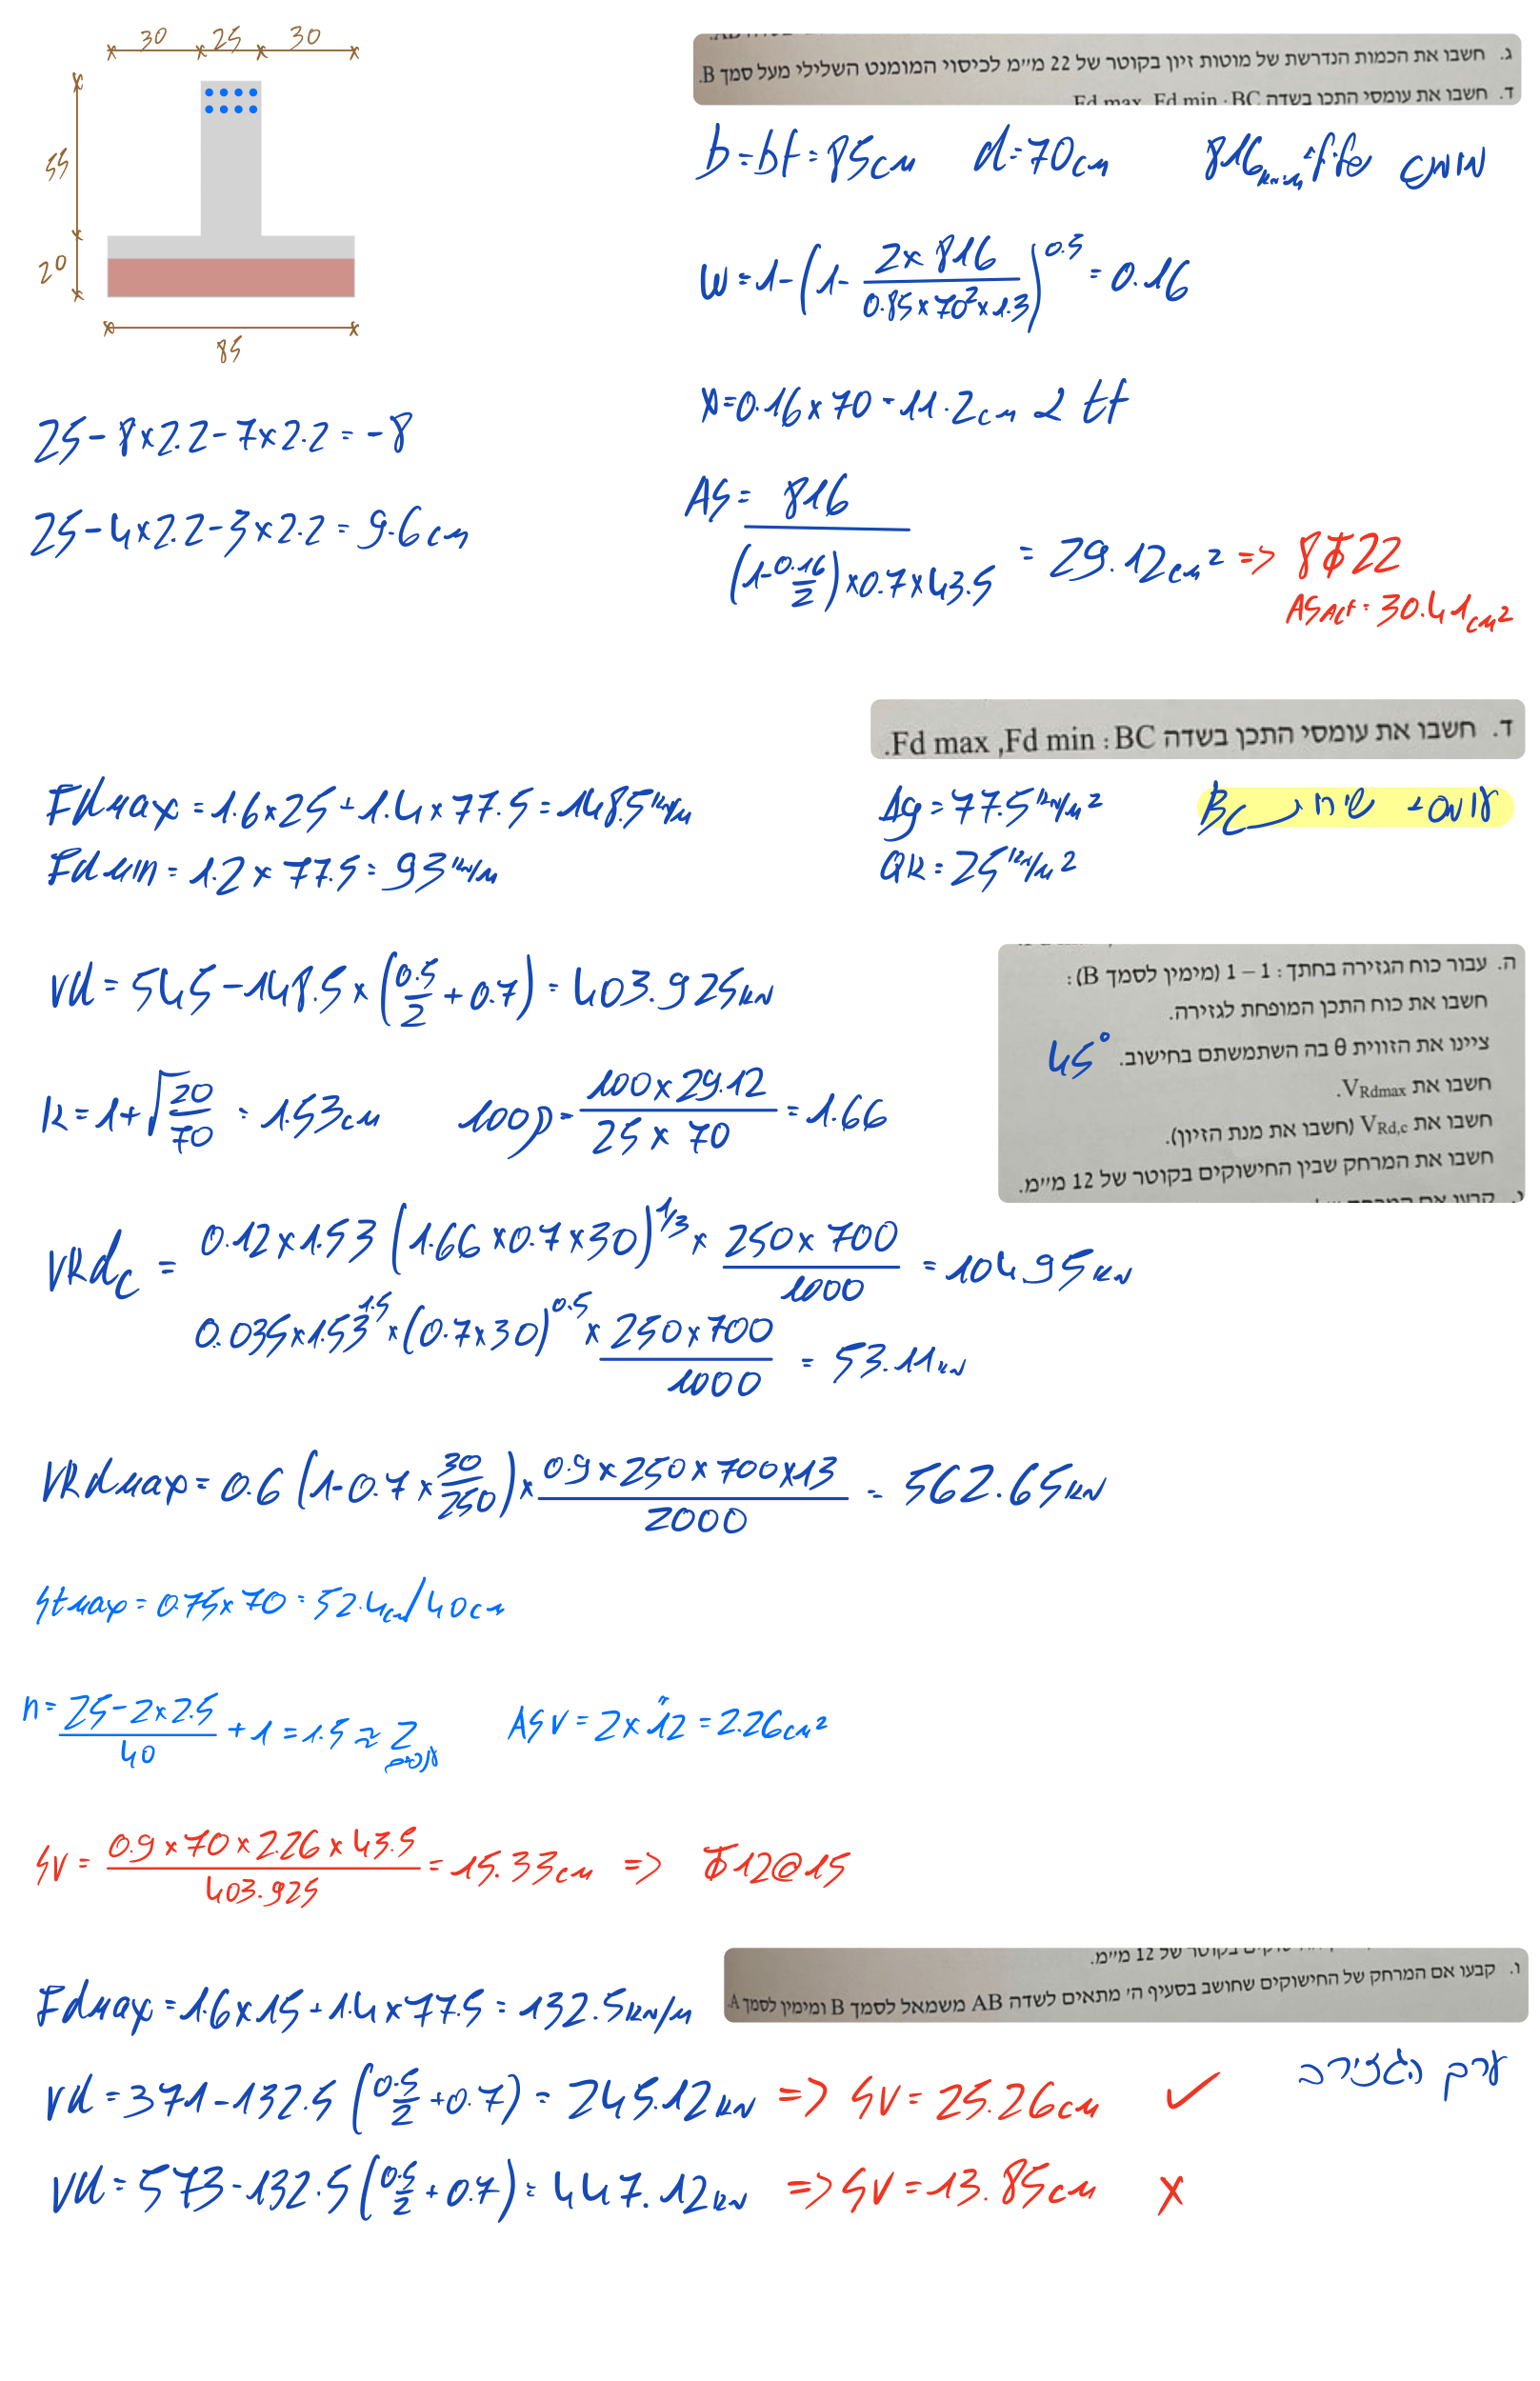 30 25 30
55
20
85
25-8×2.2-7×2.2=-8
25-4×2.2-3×2.2=9.6cm
ג. חשבו את הכמות הנדרשת של מוטות זיון בקוטר של 22 מ״מ לכיסוי המומנט השלילי מעל סמך B.
ד. חשבו את עומסי התכן בשדה BC : Fd max ,Fd min
b=bf=85cm d=70cm
816kN·m
W=1-(1-2×816/(0.85×70²×1.3))^0.5=0.16
X=0.16×70=11.2cm < tf
AS=816/((1-0.16/2)×0.7×43.5)=29.12cm² => 8Φ22
ASAct=30.41cm²
ד. חשבו את עומסי התכן בשדה BC : Fd max ,Fd min.
Fdmax=1.6×25+1.4×77.5=148.5kN/m
Fdmin=1.2×77.5=93kN/m
Δg=77.5kN/m²
QK=25kN/m²
BC
Vd=545-148.5×(0.5/2+0.7)=403.925kN
ה. עבור כוח הגזירה בחתך: 1 – 1 (מימין לסמך B):
חשבו את כוח התכן המופחת לגזירה.
ציינו את הזווית θ בה השתמשתם בחישוב. 45°
חשבו את VRdmax.
חשבו את VRd,c (חשבו את מנת הזיון).
חשבו את המרחק שבין החישוקים בקוטר של 12 מ״מ.
K=1+√(20/70)=1.53cm 100ρ=(100×29.12)/(25×70)=1.66
VRdc=0.12×1.53(1.66×0.7×30)^1/3×(250×700)/1000=104.95kN
0.035×1.53^1.5×(0.7×30)^0.5×(250×700)/1000=53.11kN
VRdmax=0.6(1-0.7×30/250)×(0.9×250×700×13)/2000=562.65kN
Stmax=0.75×70=52.4cm/40cm
n=(25-2×2.5)/40+1=1.5≈2 ASV=2×12=2.26cm²
SV=(0.9×70×2.26×43.5)/403.925=15.33cm => Φ12@15
ו. קבעו אם המרחק של החישוקים שחושב בסעיף ה׳ מתאים לשדה AB משמאל לסמך B ומימין לסמך A.
Fdmax=1.6×15+1.4×77.5=132.5kN/m
ערך הגזירה
Vd=371-132.5(0.5/2+0.7)=245.12kN => SV=25.26cm ✓
Vd=573-132.5(0.5/2+0.7)=447.12kN => SV=13.85cm X